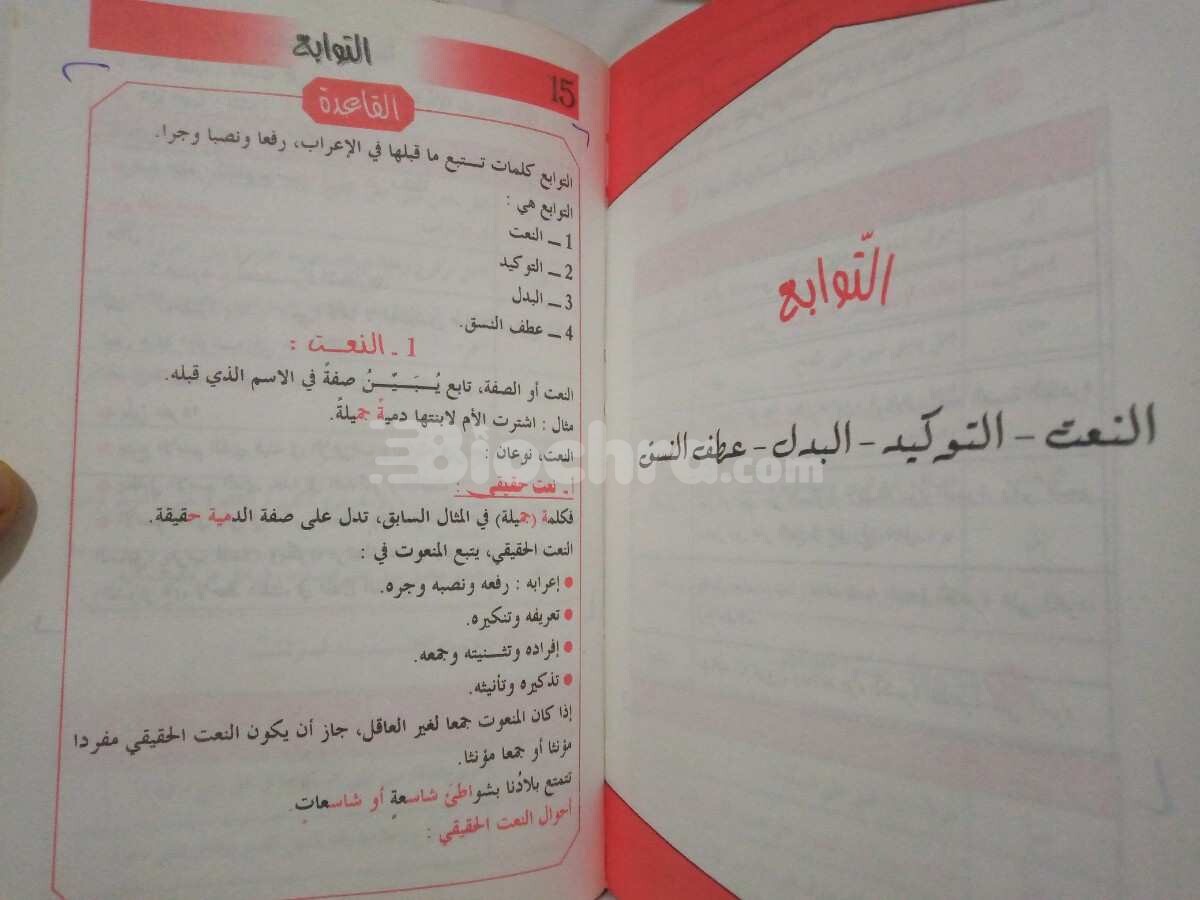 التّوابع
النعت - التوكيد - البدل - عطف النسق
التوابع
15
القاعدة
التوابع كلمات تستبع ما قبلها في الإعراب، رفعا ونصبا وجرا.
التوابع هي :
1 ـ النعت
2 ـ التوكيد
3 ـ البدل
4 ـ عطف النسق.
1 ـ النعت :
النعت أو الصفة، تابع يُبَيِّنُ صفةً في الاسم الذي قبله.
مثال : اشترت الأم لابنتها دميةً جميلةً.
النعت، نوعان :
أ ـ نعت حقيقي :
فكلمة (جميلة) في المثال السابق، تدل على صفة الدمية حقيقة.
النعت الحقيقي، يتبع المنعوت في :
• إعرابه : رفعه ونصبه وجره.
• تعريفه وتنكيره.
• إفراده وتثنيته وجمعه.
• تذكيره وتأنيثه.
إذا كان المنعوت جمعا لغير العاقل، جاز أن يكون النعت الحقيقي مفردا
مؤنثا أو جمعا مؤنثا.
تتمتع بلادُنا بشواطئَ شاسعةٍ أو شاسعاتٍ.
أحوال النعت الحقيقي :
Biochra.com